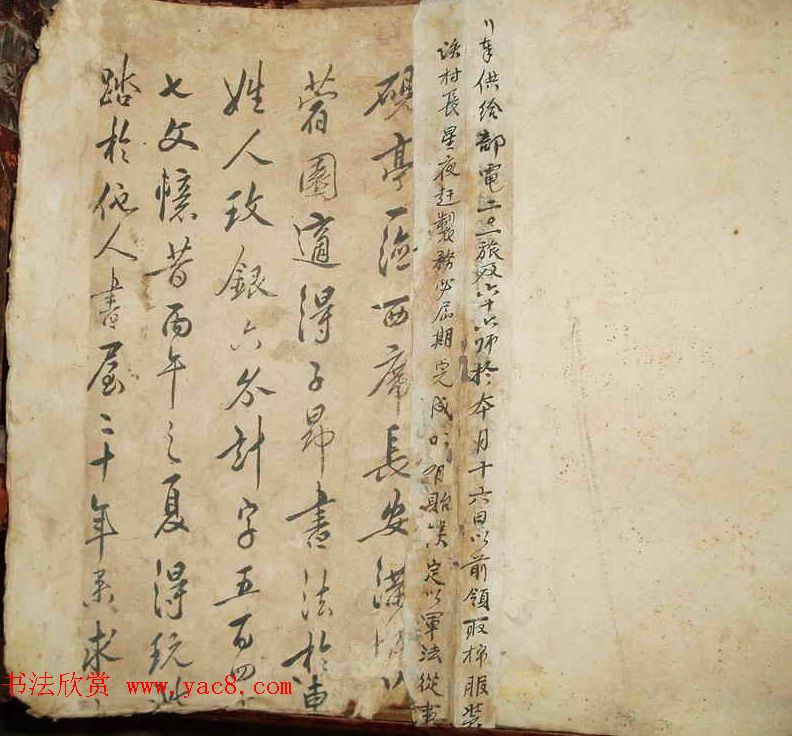 奉供给部電二〇二旅及六十六师於本月十六日以前領取棉服裝
該村長星夜赶製務必届期完成 貽误定以軍法從事
硯亭 西席長安
茗園適得子昂書法於
姓人玫銀六分計字五百四
七文憶昔丙午之夏得玩
踏於佗人書屋二十年 求
书法欣赏 www.yac8.com